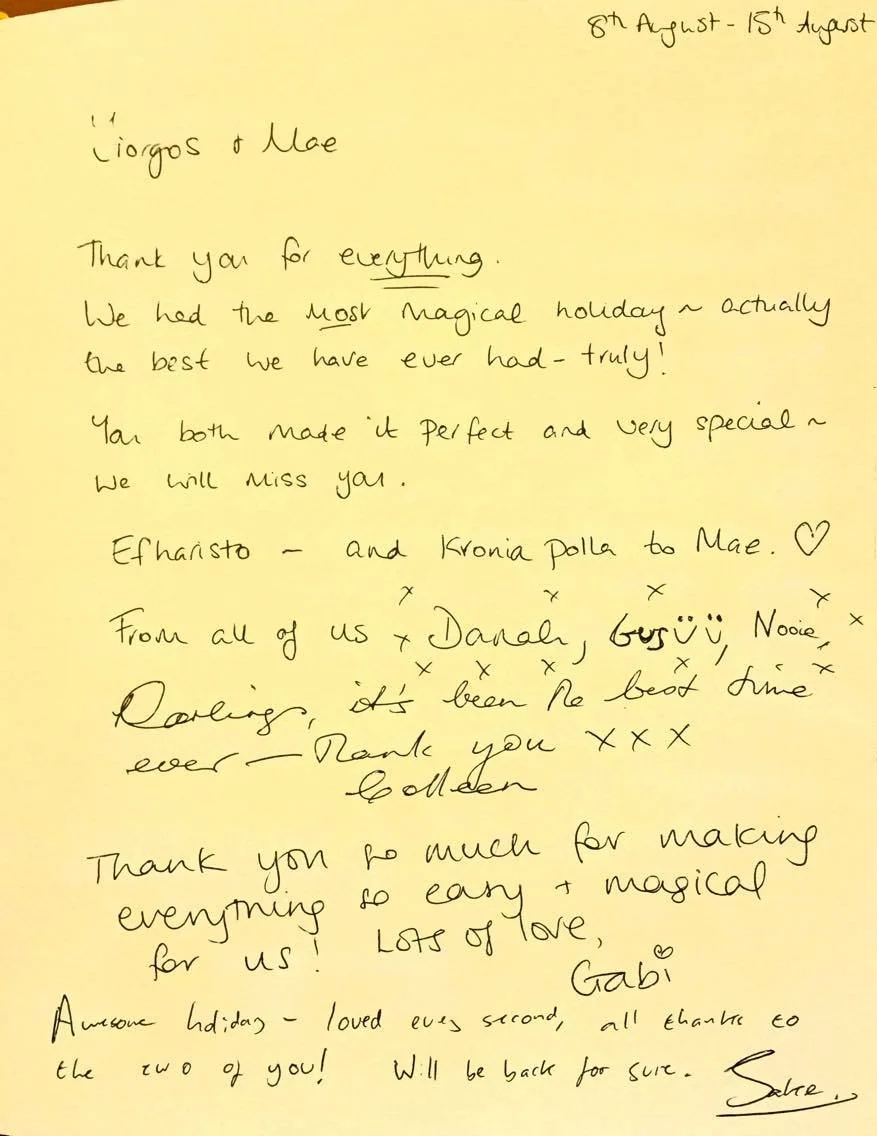 8th August - 15th August
Yiorgos + Mae
Thank you for everything.
We had the most magical holiday ~ actually
the best we have ever had - truly!
You both made it perfect and very special ~
we will miss you.
Efharisto - and Kronia polla to Mae. ♡
From all of us x Danah, Gus ü ü, Nooie, x
Darlings, it's been the best time
ever — Thank you x x x
Colleen
Thank you so much for making
everything so easy + magical
for us! Lots of love,
Gabi
Awesome holiday - loved every second, all thanks to
the two of you! Will be back for sure.